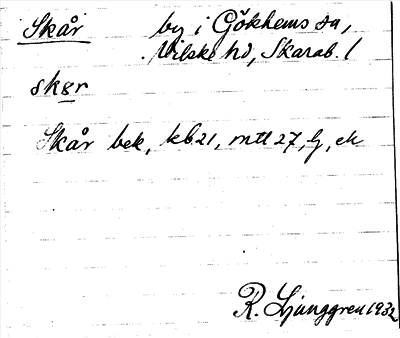 Skår by i Gökhems sn,
Vilske hd, Skarab. l
skær
Skår bek, kb 21, mtl 27, lj, ek
R. Ljunggren 1932